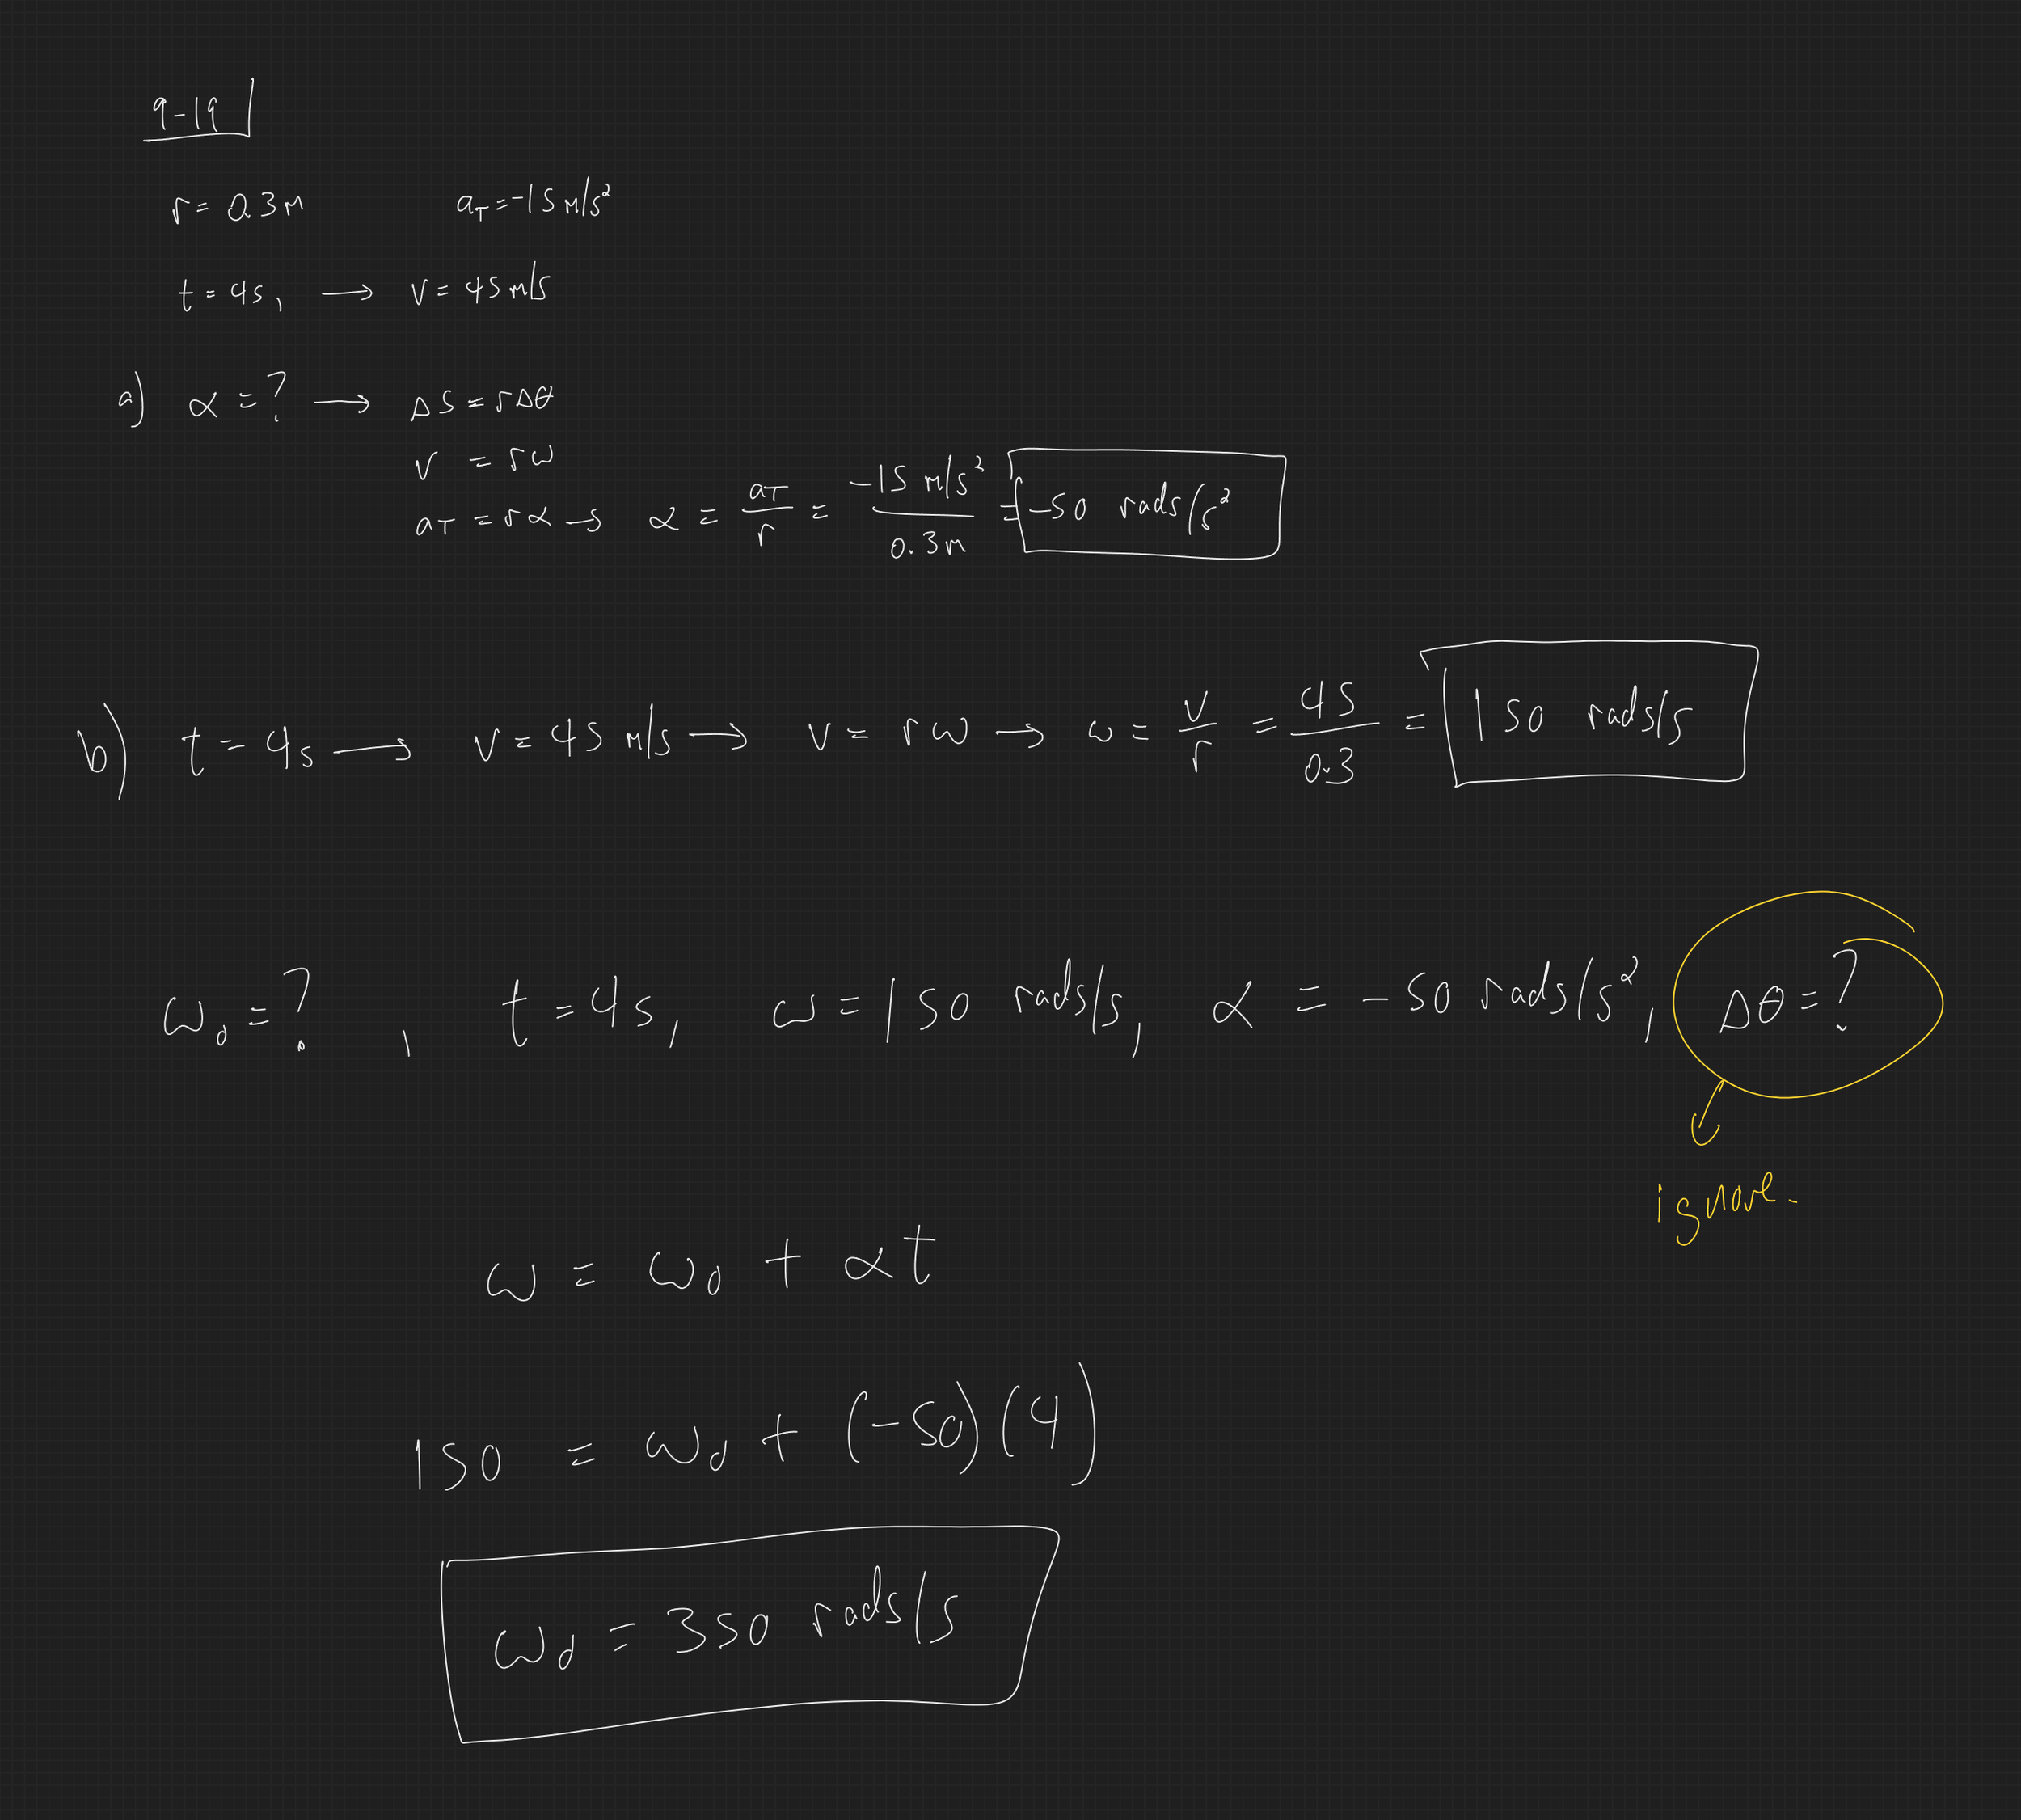 9-19
r = 0.3m a_T = -15 m/s²
t = 4s, → v = 45 m/s
a) α = ? → Δs = rΔθ
v = rω
a_T = rα → α = a_T/r = -15 m/s² / 0.3m = -50 rads/s²
b) t = 4s → v = 45 m/s → v = rω → ω = v/r = 45/0.3 = 150 rads/s
ω₀ = ?, t = 4s, ω = 150 rads/s, α = -50 rads/s², Δθ = ?
ignore.
ω = ω₀ + αt
150 = ω₀ + (-50)(4)
ω₀ = 350 rads/s